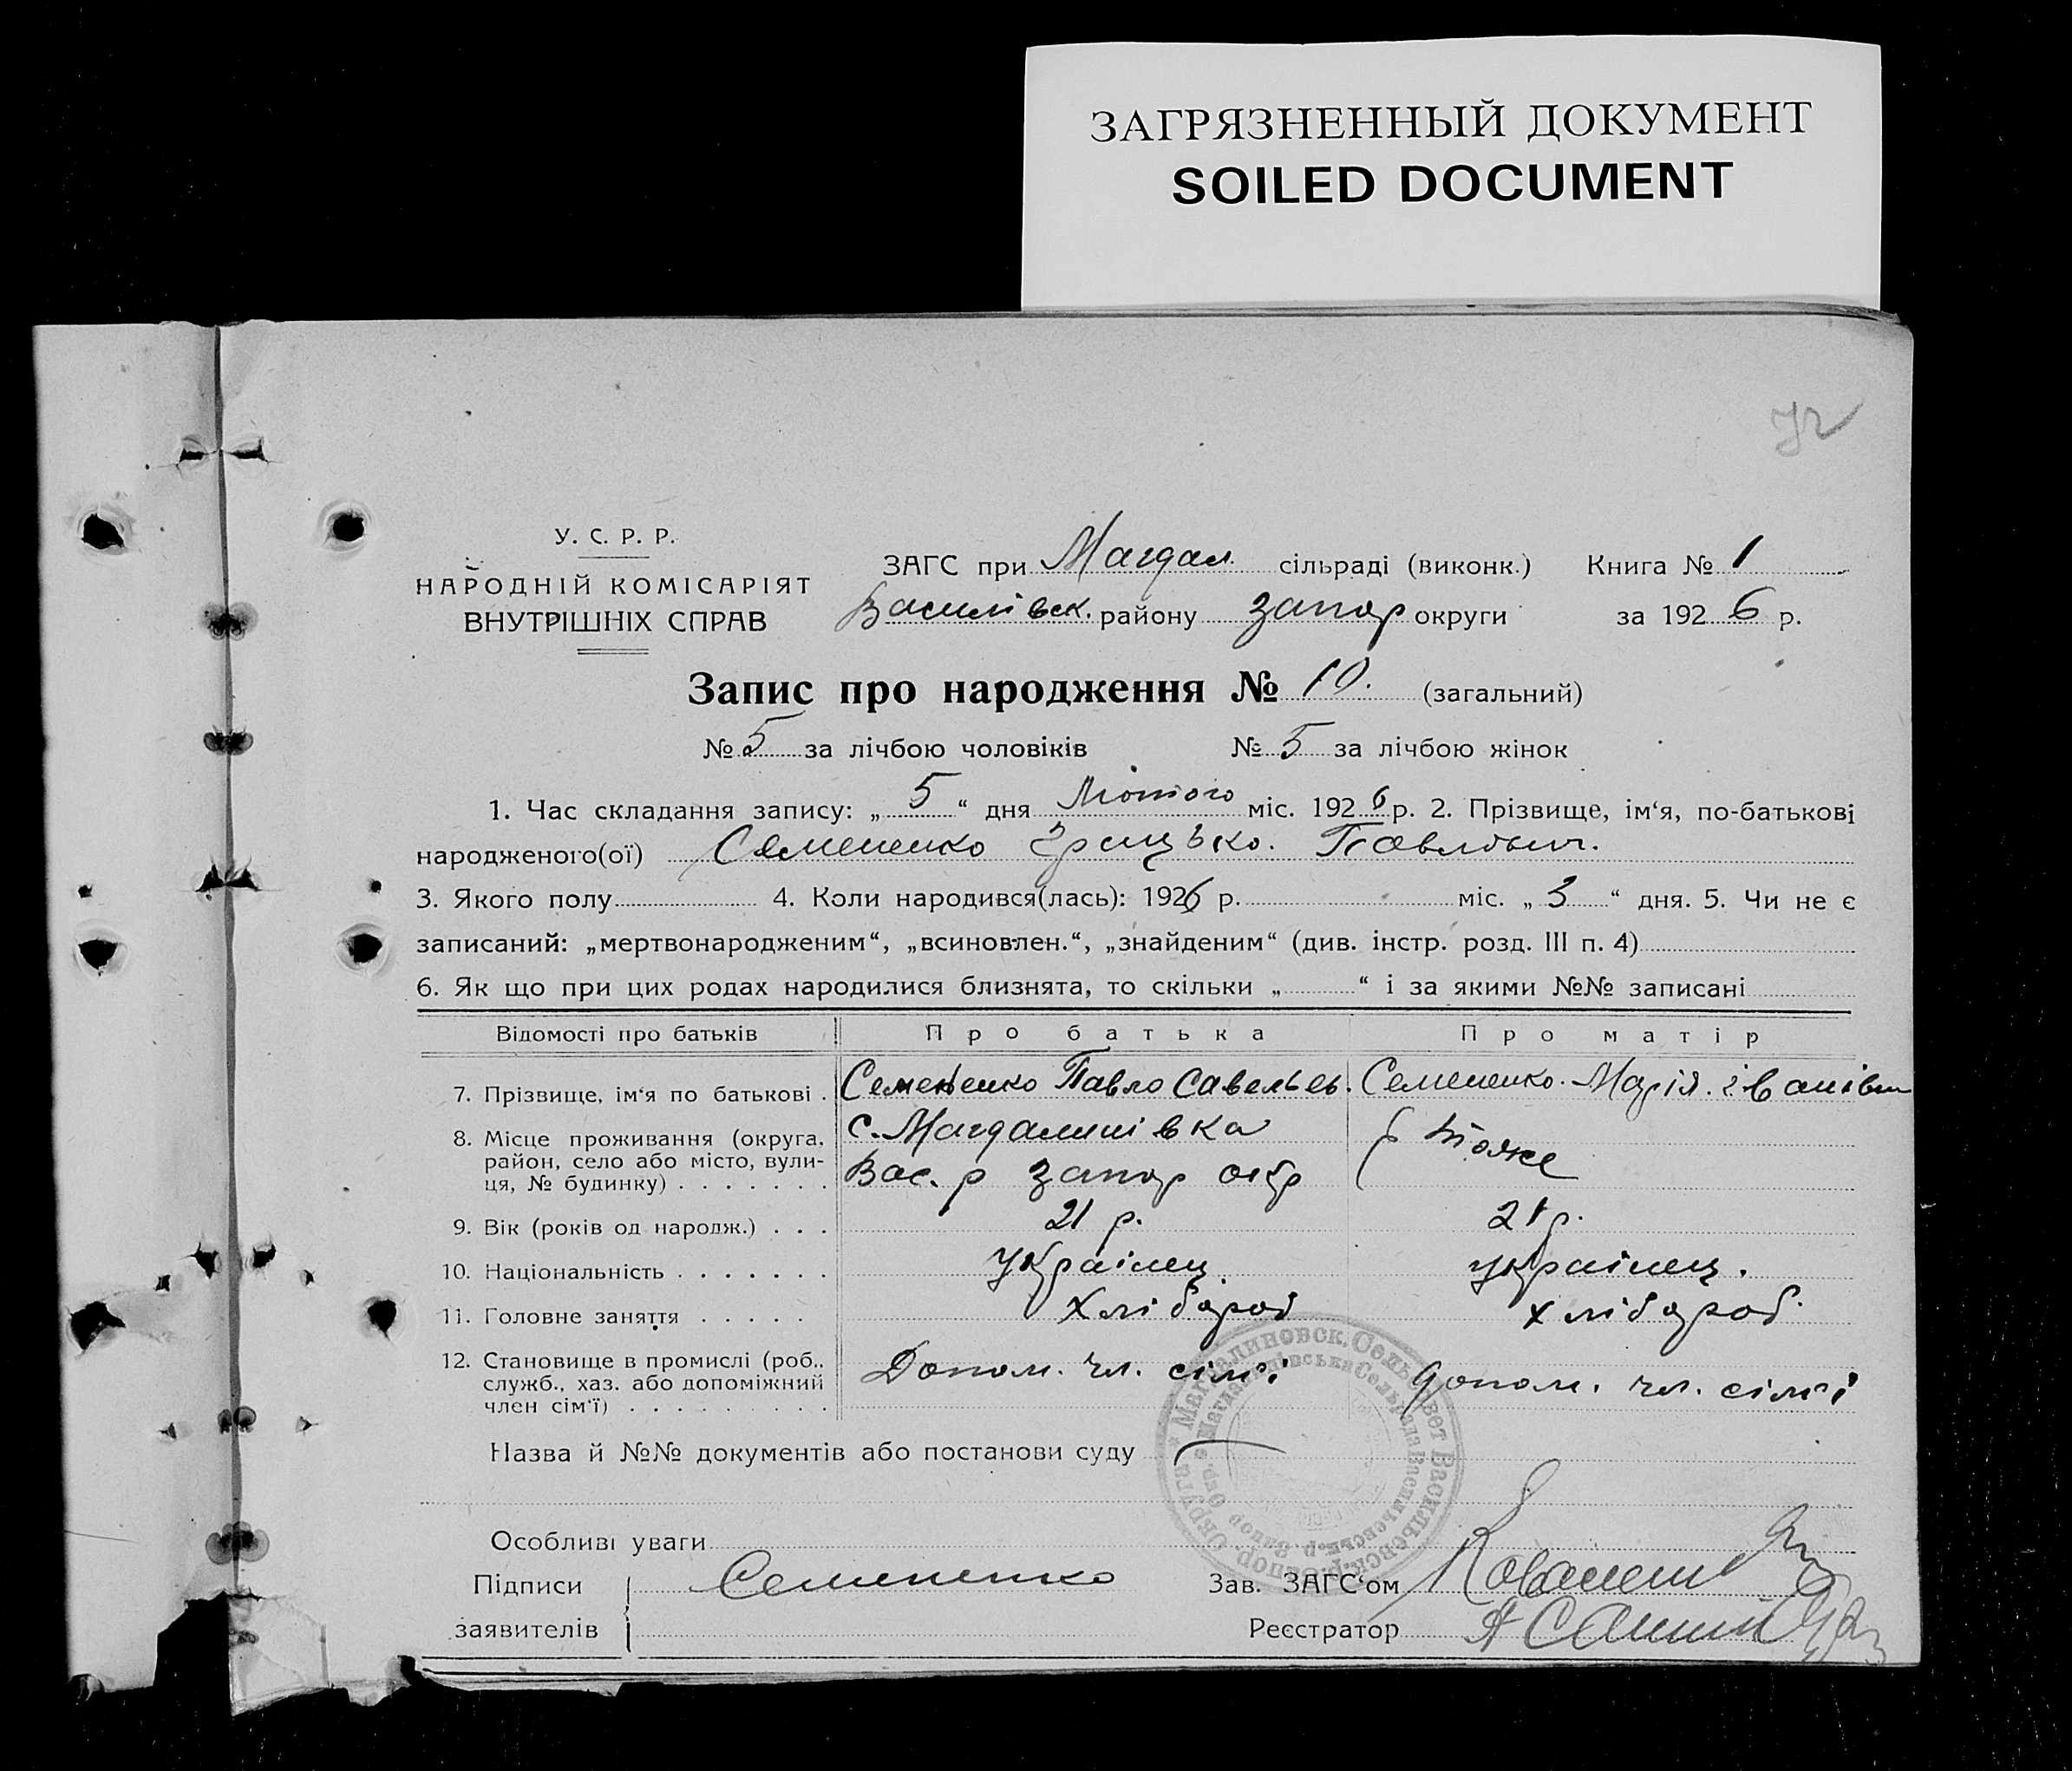 ЗАГРЯЗНЕННЫЙ ДОКУМЕНТ
SOILED DOCUMENT
У. С. Р. Р.
НАРОДНІЙ КОМІСАРІЯТ
ВНУТРІШНІХ СПРАВ
ЗАГС при Магдал. сільраді (виконк.) Книга № 1
Василівск. району запор округи за 1926 р.
Запис про народження № 10. (загальний)
№ 5 за лічбою чоловіків № 5 за лічбою жінок
1. Час складання запису: „5“ дня Лютого міс. 1926 р. 2. Прізвище, ім‘я, по-батькові
народженого(ої) Семененко Грицько. Павлович.
3. Якого полу 4. Коли народився(лась): 1926 р. міс. „3“ дня. 5. Чи не є
записаний: „мертвонародженим“, „всиновлен.“, „знайденим“ (див. інстр. розд. III п. 4)
6. Як що при цих родах народилися близнята, то скільки „ “ і за якими №№ записані
Відомості про батьків Про батька Про матір
7. Прізвище, ім‘я по батькові . Семененко Павло Савельев. Семененко. Марія. іванівн
8. Місце проживання (округа, район, село або місто, вулиця, № будинку) с. Магдалинівка
Вас. р запор окр
9. Вік (років од народж.) . . . 21 р. 21 р.
10. Національність . . . . . . . українец. українец.
11. Головне заняття . . . . . хлібороб хлібороб.
12. Становище в промислі (роб., служб., хаз. або допоміжний член сім‘ї) Допом. чл. сім'ї допом. чл. сім'ї
Назва й №№ документів або постанови суду
Особливі уваги
Підписи Семененко Зав. ЗАГС‘ом
заявителів Реєстратор
Магдалиновск. Сельсовет Васильевск. р. Запор. Округи